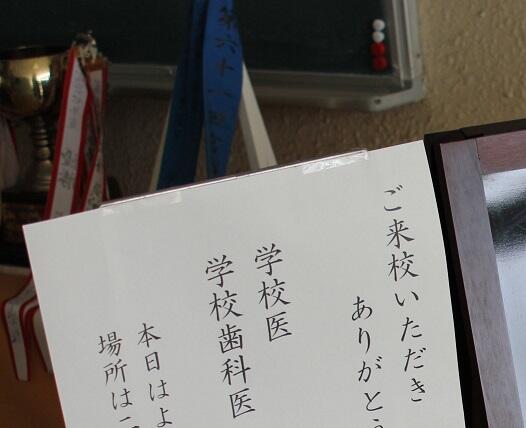 ご来校いただき
ありがとう
学校医
学校歯科医
本日はよ
場所は
第六十一回